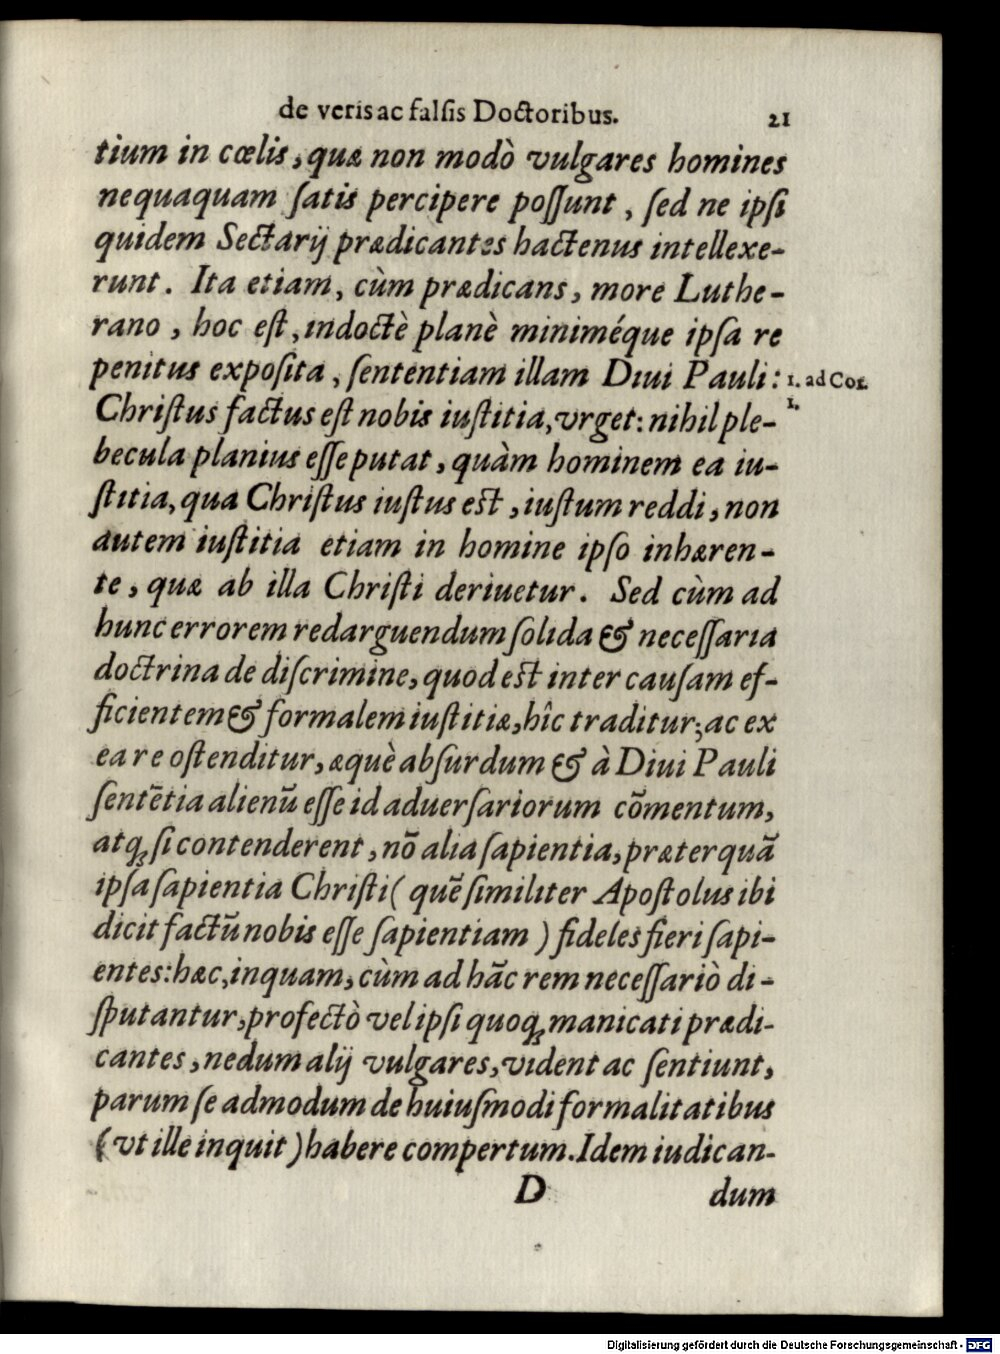 de veris ac falſis Doctoribus. 21
tium in cœlis, quæ non modò vulgares homines
nequaquam ſatis percipere poſſunt, ſed ne ipſi
quidem Sectarij prædicantes hactenus intellexe-
runt. Ita etiam, cùm prædicans, more Luthe-
rano, hoc eſt, indoctè planè miniméque ipſa re
penitus expoſita, ſententiam illam Diui Pauli: 1. ad Cor.
1.
Chriſtus factus eſt nobis iuſtitia, vrget: nihil ple-
becula planius eſſe putat, quàm hominem ea iu-
ſtitia, qua Chriſtus iuſtus eſt, iuſtum reddi, non
autem iuſtitia etiam in homine ipſo inhæren-
te, quæ ab illa Chriſti deriuetur. Sed cùm ad
hunc errorem redarguendum ſolida & neceſſaria
doctrina de diſcrimine, quod eſt inter cauſam ef-
ficientem & formalem iuſtitiæ, hîc traditur; ac ex
ea re oſtenditur, æquè abſurdum & à Diui Pauli
ſentētia alienū eſſe id aduerſariorum cōmentum,
atꝗ; ſi contenderent, nō alia ſapientia, præterquā
ipſa ſapientia Chriſti ( quē ſimiliter Apoſtolus ibi
dicit factū nobis eſſe ſapientiam ) fideles fieri ſapi-
entes: hæc, inquam, cùm ad hāc rem neceſſariò di-
ſputantur, profectò vel ipſi quoꝗ; manicati prædi-
cantes, nedum alij vulgares, vident ac ſentiunt,
parum ſe admodum de huiuſmodi formalitatibus
(vt ille inquit) habere compertum. Idem iudican-
D dum
Digitalisierung gefördert durch die Deutsche Forschungsgemeinschaft - DFG